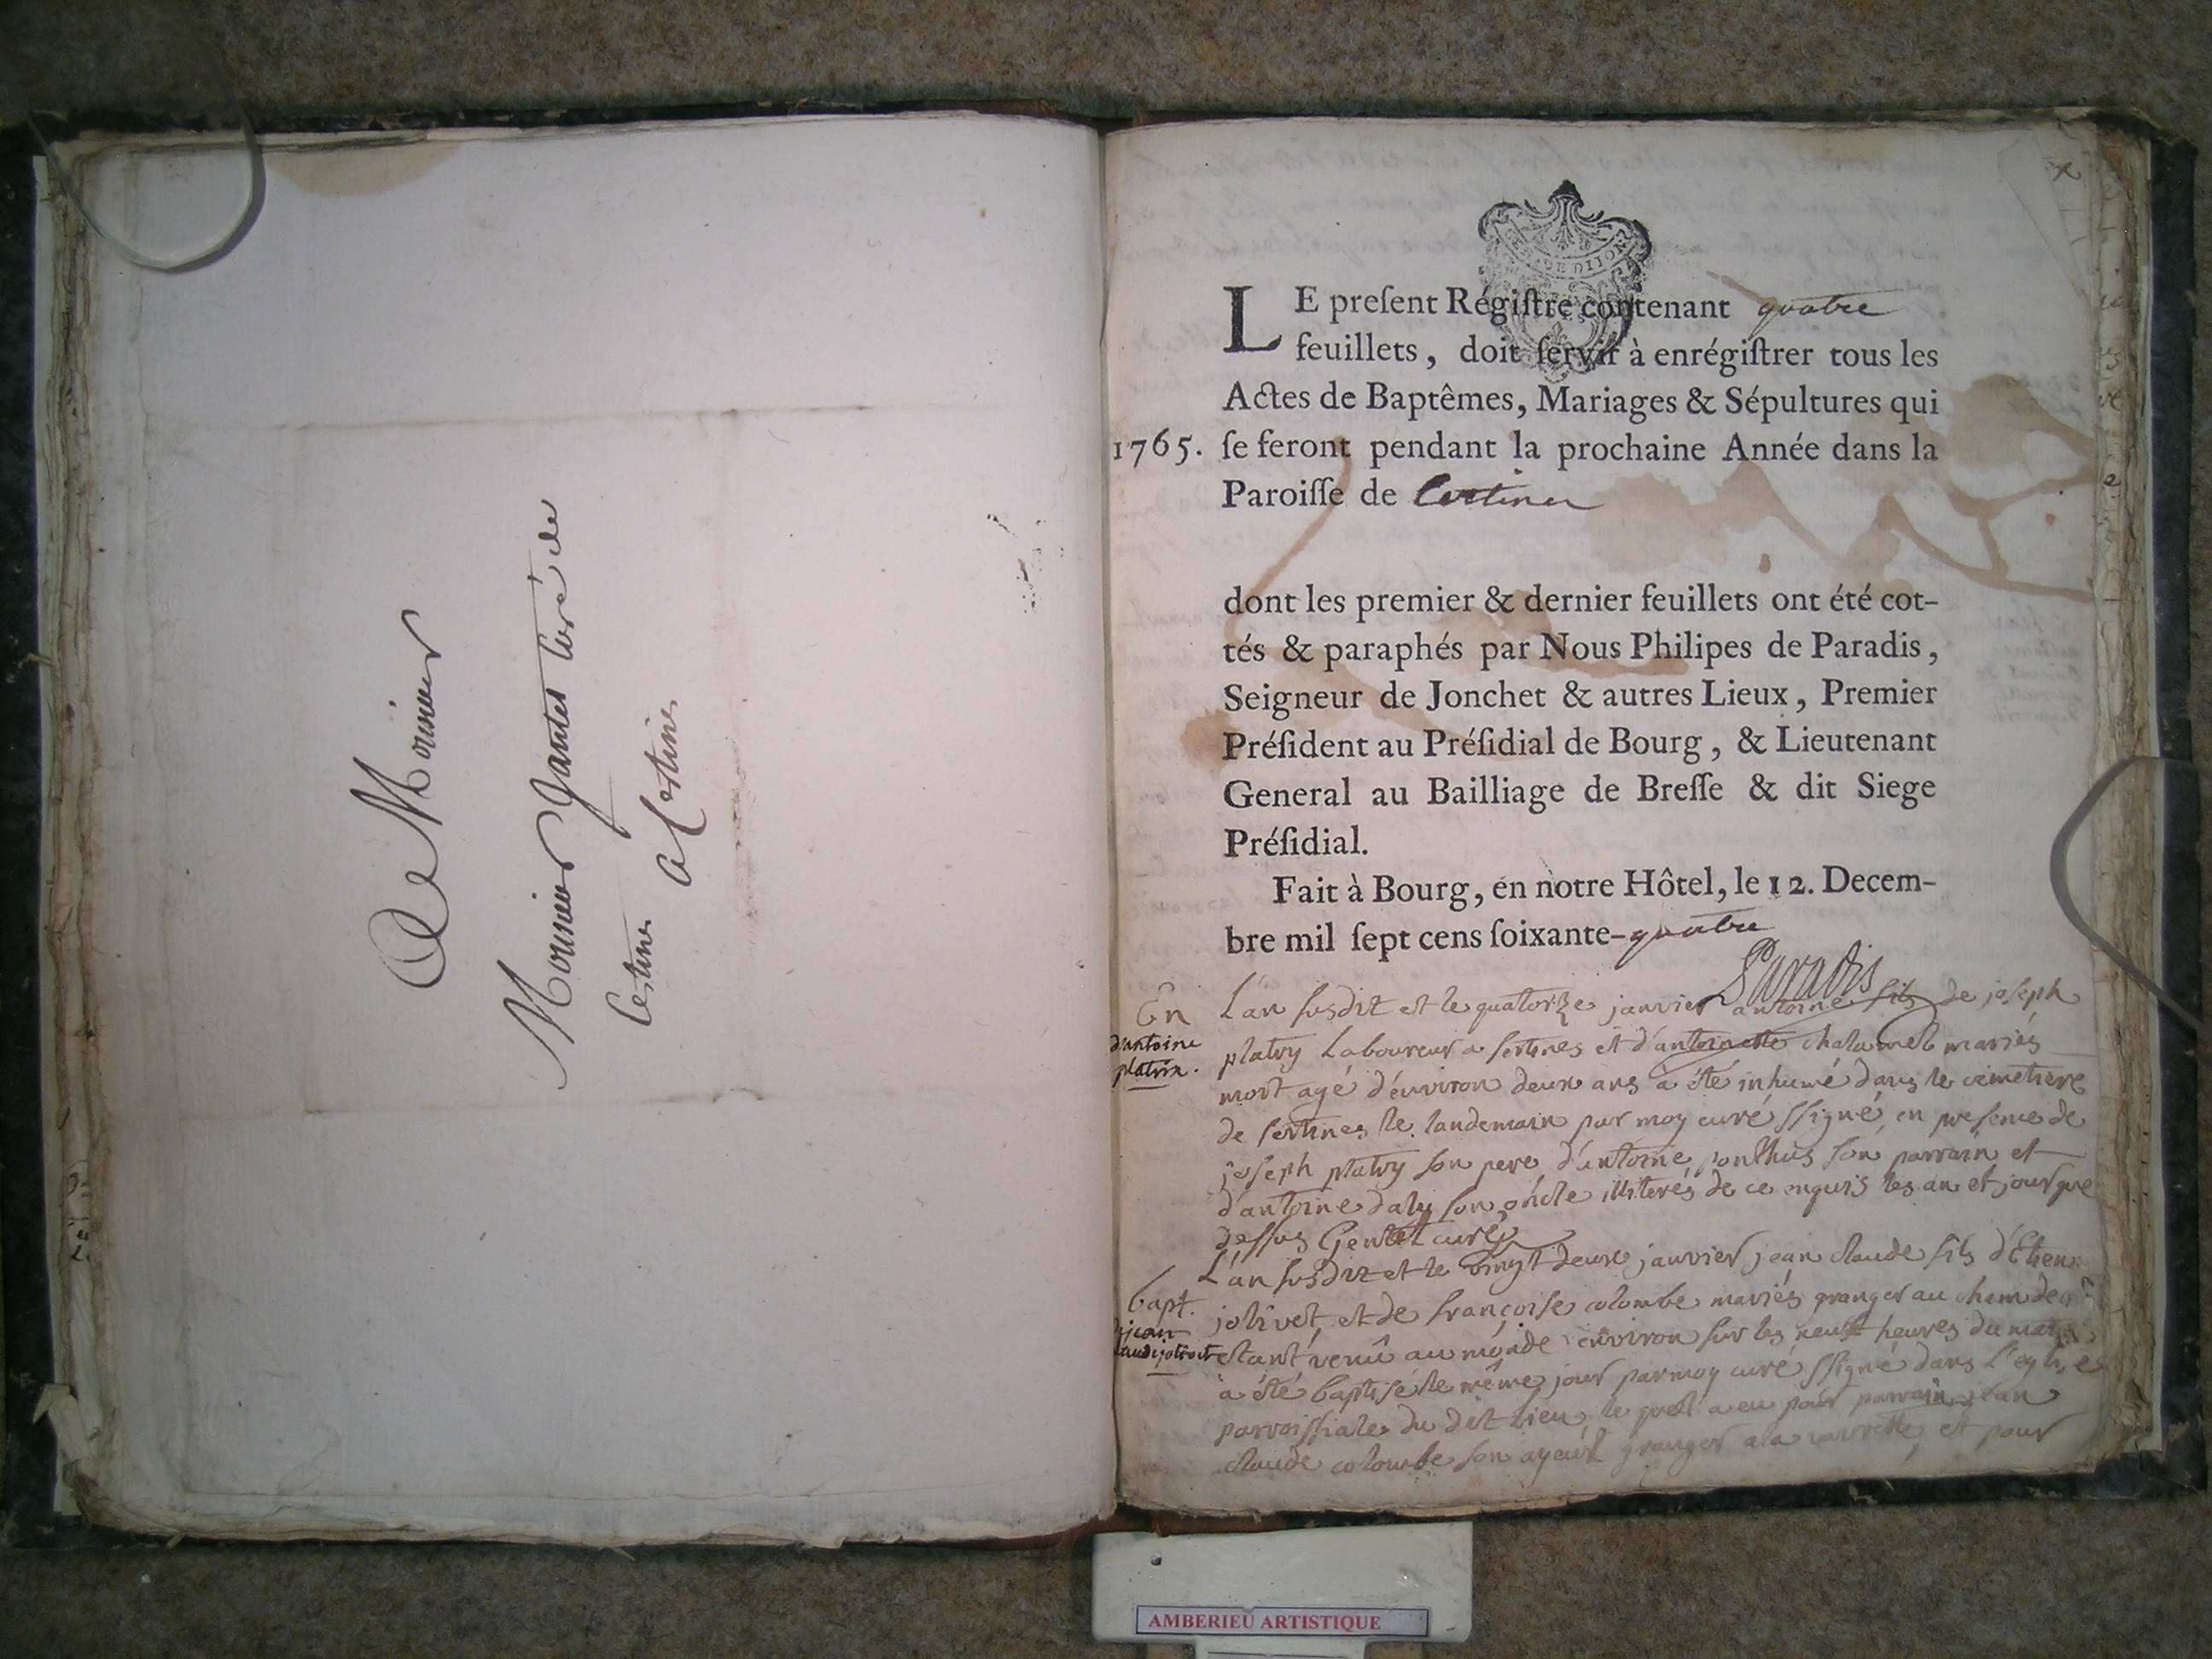 A Monsieur
Monsieur Gautet Curé de
Certines a Certines
DE DIJON
LE preſent Régiſtre contenant quatre
feuillets, doit ſervir à enrégiſtrer tous les
Actes de Baptêmes, Mariages & Sépultures qui
1765. ſe feront pendant la prochaine Année dans la
Paroiſſe de Certines
dont les premier & dernier feuillets ont été cot-
tés & paraphés par Nous Philipes de Paradis,
Seigneur de Jonchet & autres Lieux, Premier
Préſident au Préſidial de Bourg, & Lieutenant
General au Bailliage de Breſſe & dit Siege
Préſidial.
Fait à Bourg, en notre Hôtel, le 12. Decem-
bre mil ſept cens ſoixante-quatre
Paradis
En
d'antoine
platry.
L'an susdit et le quatorze janvier antoine fils de joseph
platry Laboureur a sertines et d'antoinette chalamel mariés
mort agé d'environ deux ans a été inhumé dans le cimetiere
de sertines le landemain par moy curé ssigné en presence de
joseph platry son pere d'antoine ponthus son parrain et
d'antoine daly son oncle illiterés de ce enquis les an et jour que
dessus Gentet curé
Bapt.
jean
claude jolivet
L'an susdit et le vingt deux janvier jean claude fils d'Etienne
jolivet et de françoise colombe mariés granger au chemin
etant venu au monde environ sur les neuf heures du matin
a été baptisé le même jour par moy curé ssigné dans l'eglise
parroissiale du dit lieu le quel a eu pour parrain jean
claude colombe son ayeul granger a la et pour
AMBERIEU ARTISTIQUE